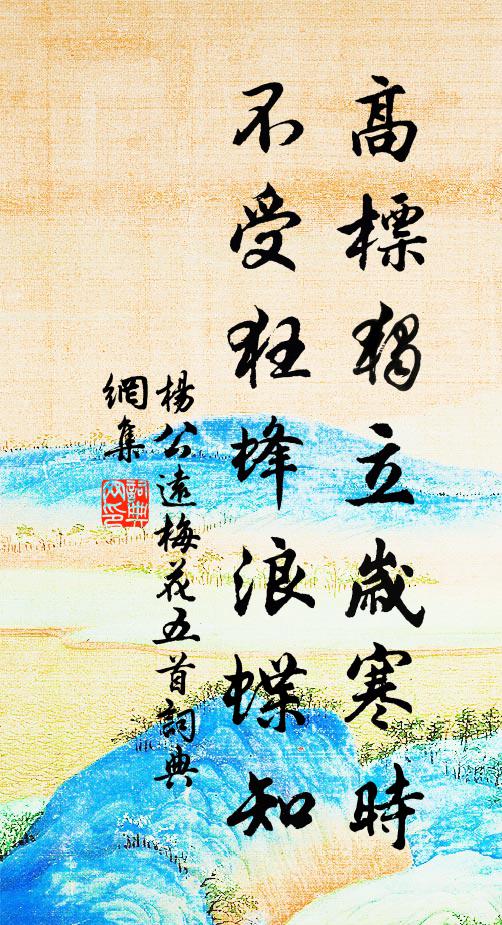 高標獨立歲寒時
不受狂蜂浪蝶知
楊公遠梅花五首詞典
網集
詞典